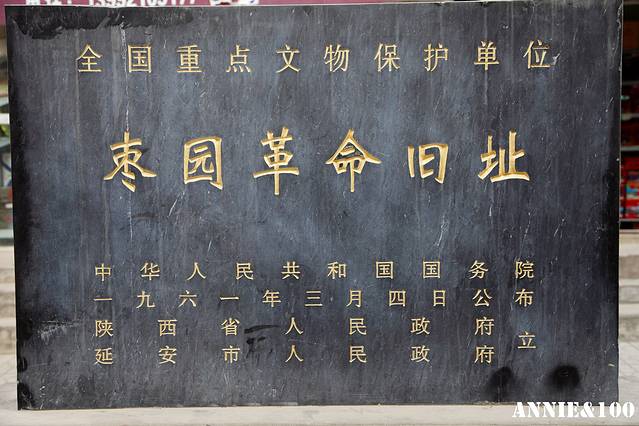 全国重点文物保护单位
枣园革命旧址
中华人民共和国国务院
一九六一年三月四日公布
陕西省人民政府
延安市人民政府
立
ANNIE&100